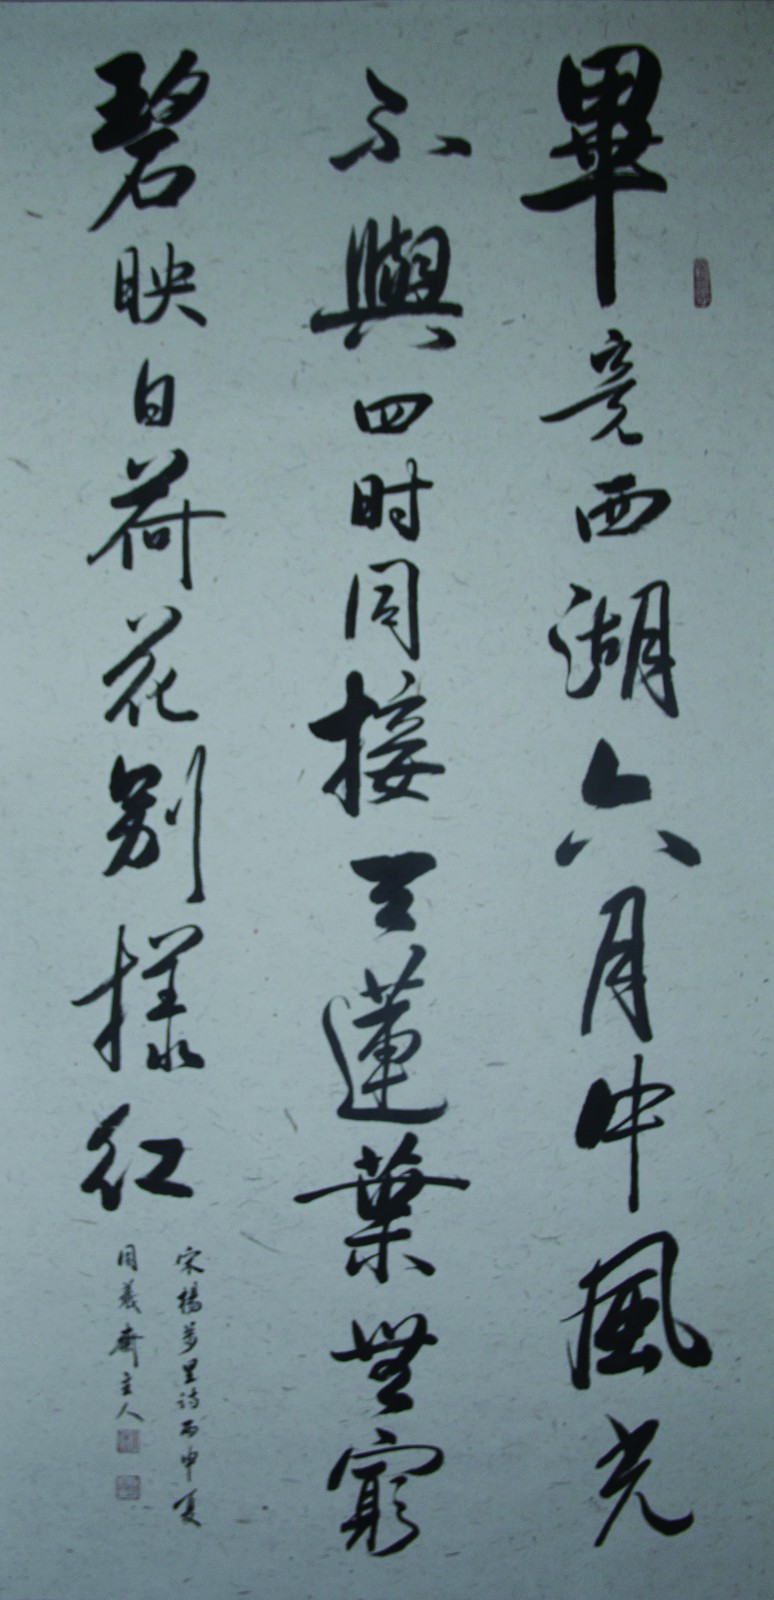 畢竟西湖六月中風光
不與四时同接天蓮葉無窮
碧映日荷花别樣紅
宋楊萬里诗丙申夏
齋主人